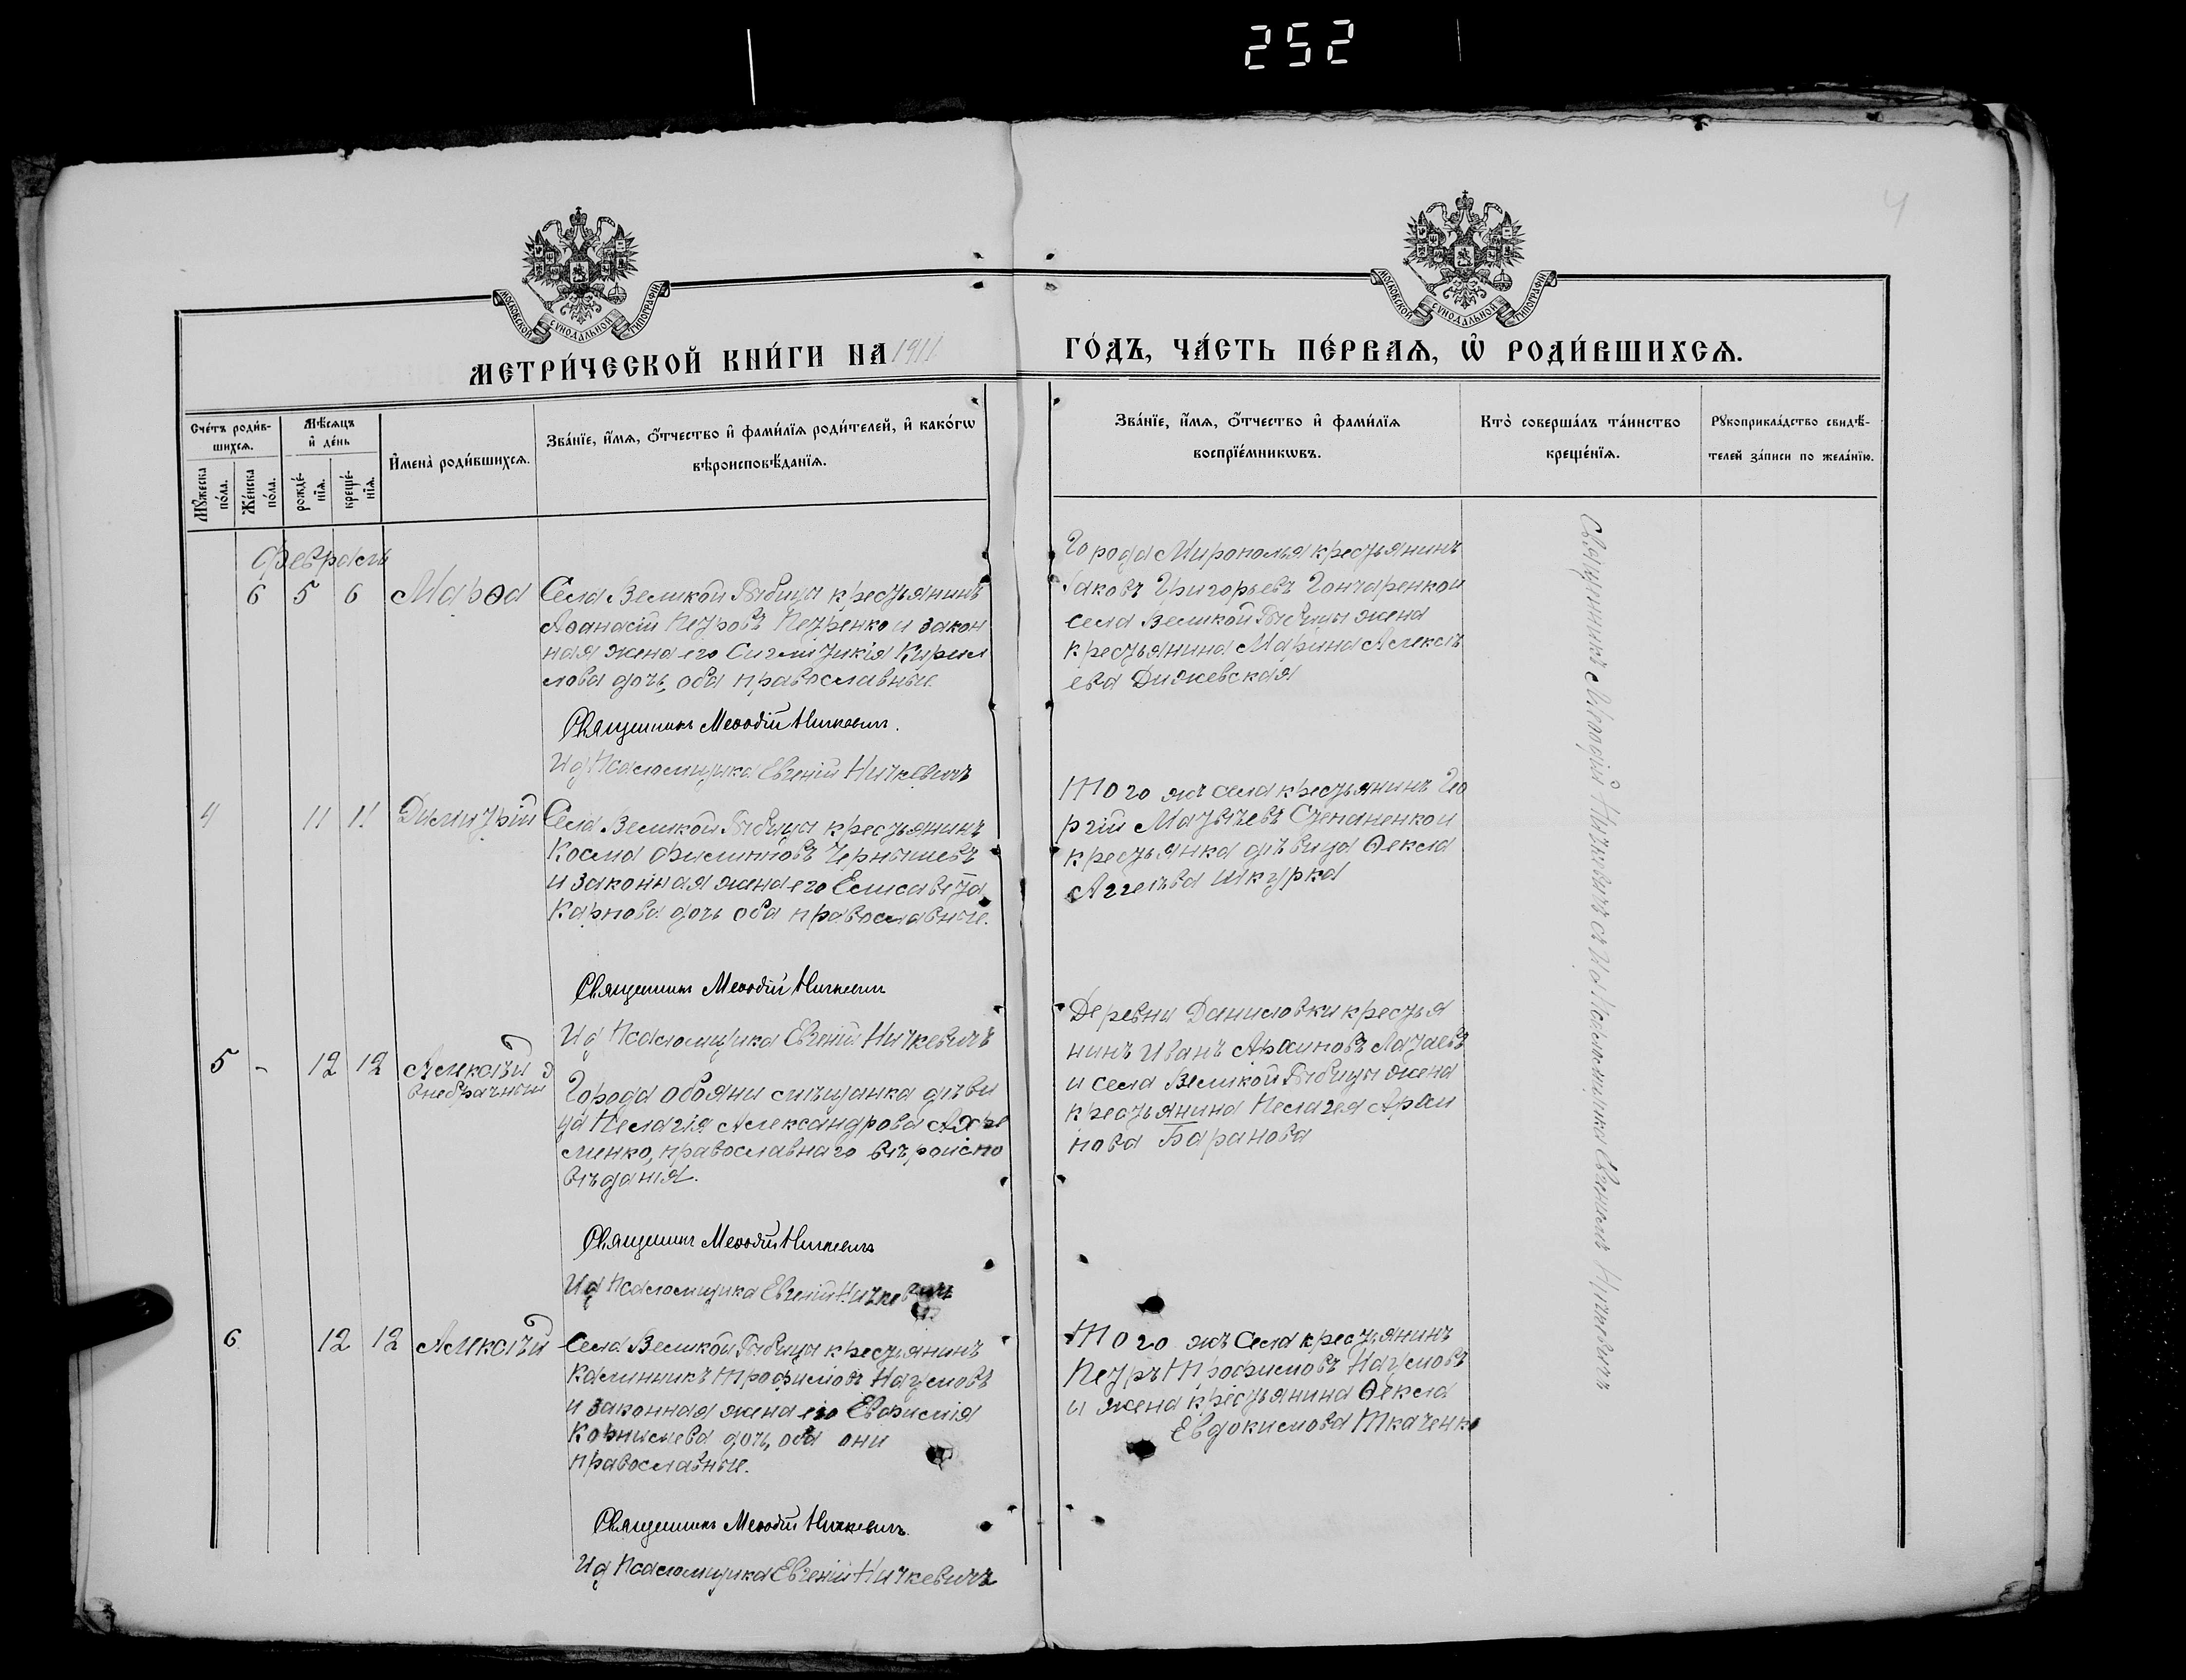 252
4
МОСКОВСКОЙ СУНОДАЛЬНОЙ ТИПОГРАФІИ
МОСКОВСКОЙ СУНОДАЛЬНОЙ ТИПОГРАФІИ
МЕТРИ́ЧЕСКОЙ КНИ́ГИ НА 1911
ГО́ДЪ, ЧА́СТЬ ПЕ́РВАѦ, Ѡ҆ РОДИ́ВШИХСѦ.
Сче́тъ роди́в-
шихсѧ.
Мꙋ́жеска по́ла.
Же́нска по́ла.
Мѣ́сѧцъ
и҆ де́нь
рожде́-
нїѧ.
креще́-
нїѧ.
И҆мена̀ роди́вшихсѧ.
Зва́нїе, и҆́мѧ, ѻ҆́тчество и҆ фами́лїѧ роди́телей, и҆ како́гѡ
вѣроисповѣ́данїѧ.
Зва́нїе, и҆́мѧ, ѻ҆́тчество и҆ фами́лїѧ
воспрїе́мникѡвъ.
Кто̀ соверша́лъ та́инство
креще́нїѧ.
Рꙋкоприкла́дство свидѣ́-
телей за́писи по жела́нїю.
Февраль
6 5 6 Марѳа
Села Великой Рыбицы крестьянинъ
Аѳанасій Петровъ Петренко и закон
ная жена его Сигклитикія Кирил
лова дочь, оба православные.
Священникъ Меѳодій Ничкевичъ.
Ид Псаломщика Евгеній Ничкевичъ
Города Мирополья крестьянинъ
Іаковъ Григорьевъ Гончаренко и
села Великой Рыбицы жена
крестьянина Марина Алексѣ
ева Дижевская
4 11 11 Димитрій
Села Великой Рыбицы крестьянинъ
Косма Филипповъ Чернышевъ
и законная жена его Елисавета
Карпова дочь оба православные.
Священникъ Меѳодій Ничкевичъ
Ид Псаломщика Евгеній Ничкевичъ
Того жъ села крестьянинъ Гео
ргій Матвѣевъ Степаненко и
крестьянка дѣвица Ѳекла
Аггеева Шкурка
5 - 12 12 Алексѣй
внебрачный
Города Обояни мѣщанка дѣви
ца Пелагія Александрова
православнаго вѣроиспо
вѣданія.
Священникъ Меѳодій Ничкевичъ
Ид Псаломщика Евгеній Ничкевичъ
Деревни Даниловки крестья
нинъ Иванъ
и села Великой Рыбицы жена
крестьянина Пелагея Архи
пова Баранова
6 12 12 Алексѣй
Села Великой Рыбицы крестьянинъ
Каллиникъ Трофимовъ Наумовъ
и законная жена его Евфимія
Корнилева дочь, оба они
православные.
Священникъ Меѳодій Ничкевичъ.
Ид Псаломщика Евгеній Ничкевичъ
Того жъ Села крестьянинъ
Петръ Трофимовъ Наумовъ
и жена крестьянина Ѳекла
Евдокимова Ткаченко
Священникъ Меѳодій Ничкевичъ съ Ид Псаломщика Евгеніемъ Ничкевичъ